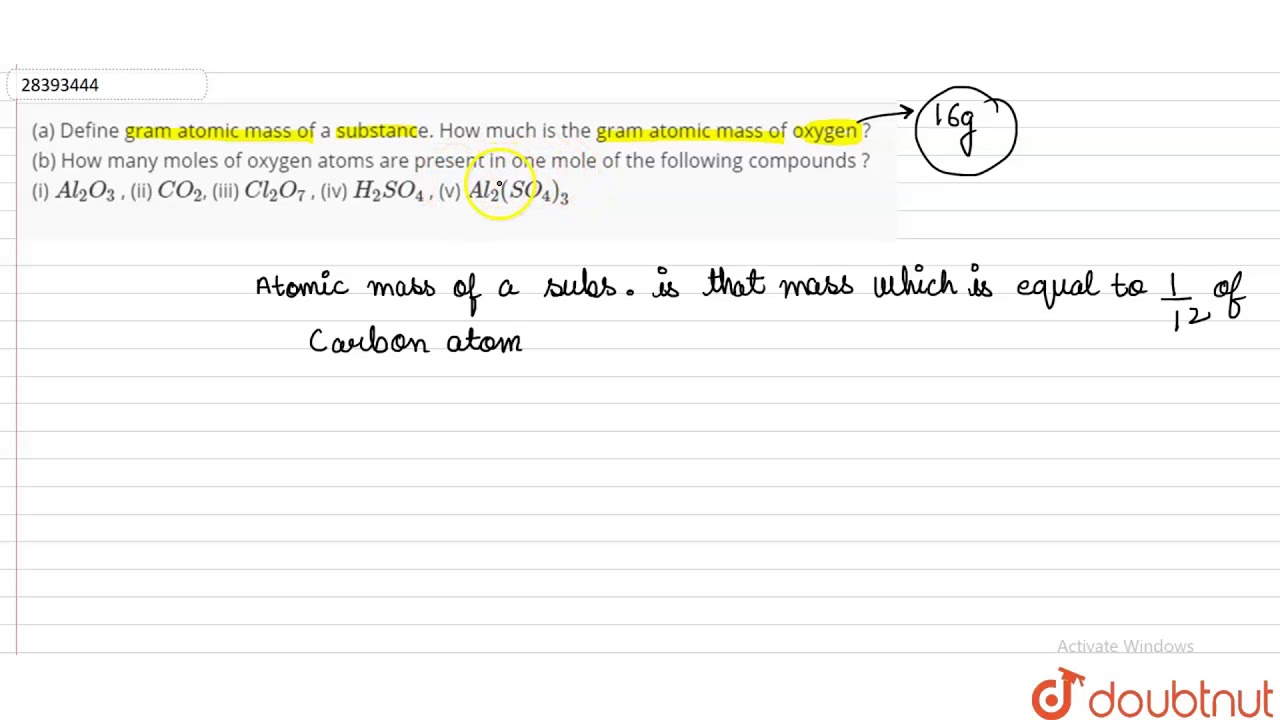 28393444
(a) Define gram atomic mass of a substance. How much is the gram atomic mass of oxygen ?
16g
(b) How many moles of oxygen atoms are present in one mole of the following compounds ?
(i) Al₂O₃ , (ii) CO₂, (iii) Cl₂O₇ , (iv) H₂SO₄ , (v) Al₂(SO₄)₃
Atomic mass of a subs. is that mass which is equal to 1/12 of
Carbon atom
Activate Windows
doubtnut